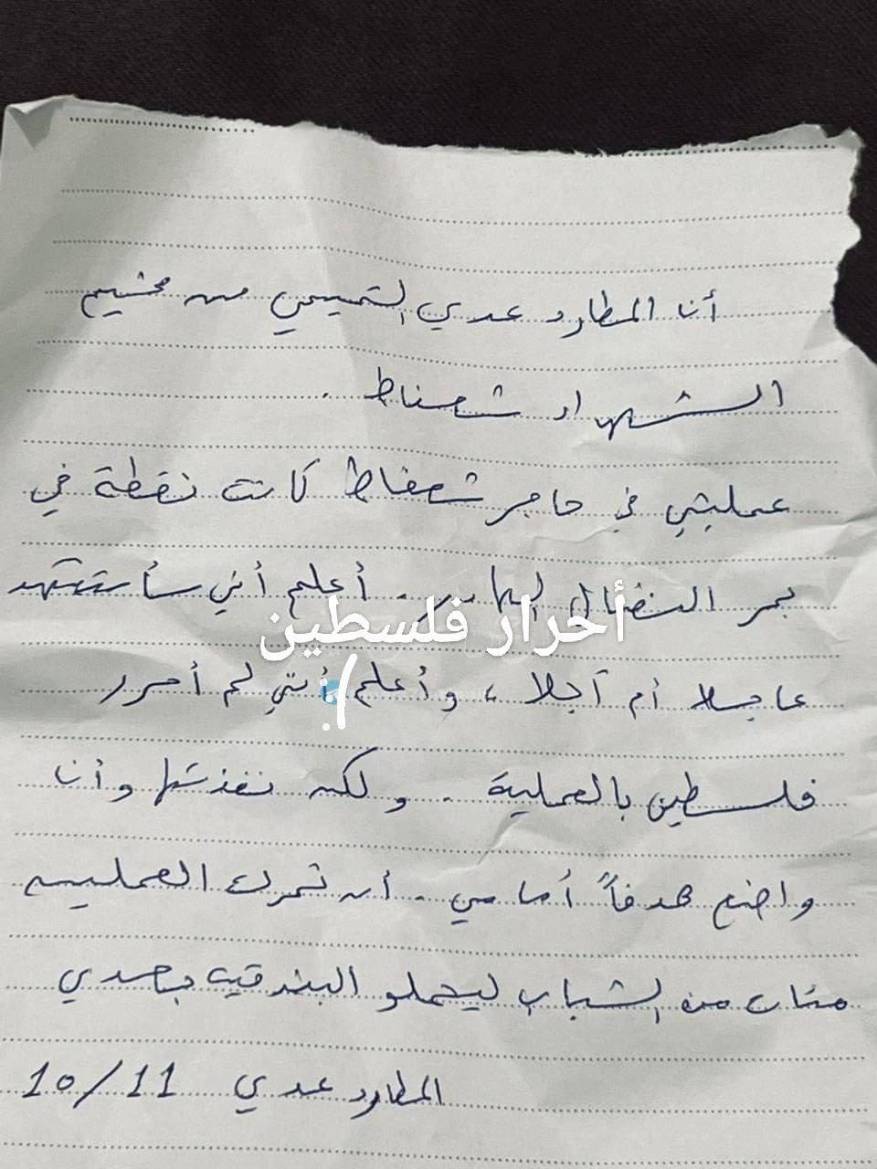 أنا المطارد عدي التميمي من مخيم
الشهداء شعفاط .
عمليتي في حاجز شعفاط كانت نقطة في
بحر النضال الهادر . أعلم أني سأستشهد
أحرار فلسطين
عاجلا أم آجلا ، وأعلم أنني لم أحرر
فلسطين بالعملية . ولكن نفذتها وأنا
واضع هدفاً أمامي . أن تحرك العمليه
مئات من الشباب ليحملو البندقيه بعدي
المطارد عدي 10/11